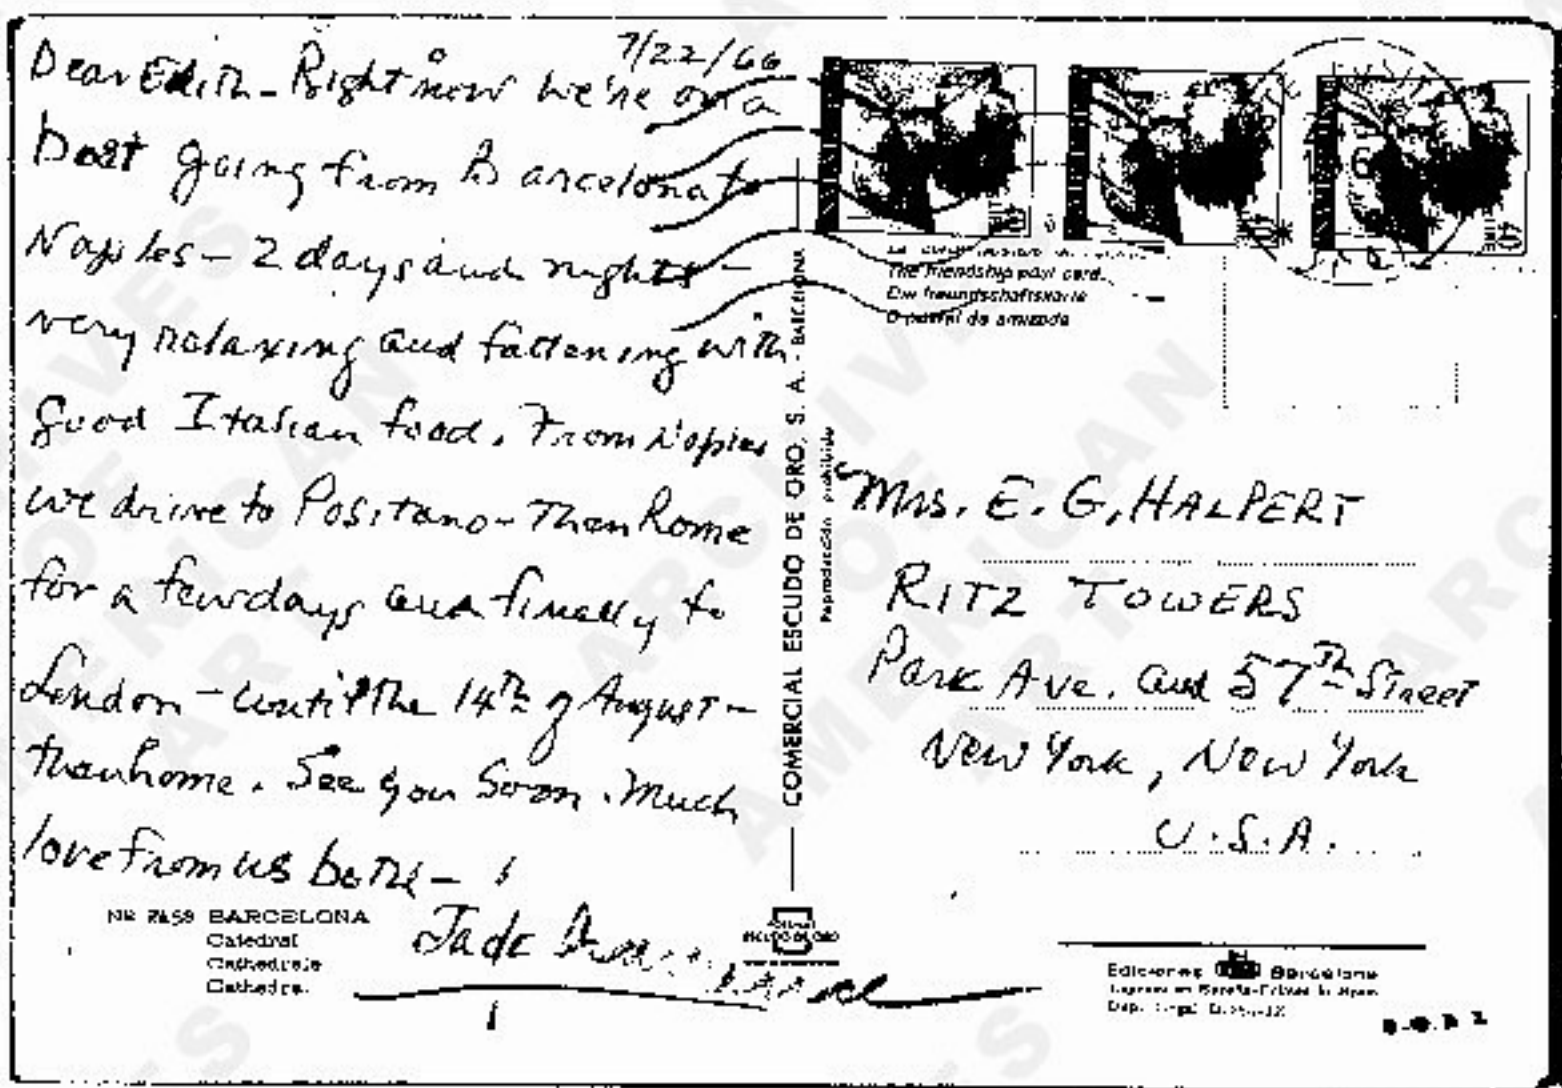 7/22/66
Dear Edith - Right now we're on a
boat going from Barcelona to
Naples - 2 days and nights -
very relaxing and fattening with
good Italian food. From Naples
we drive to Positano - Then Rome
for a few days and finally to
London - until the 14th of August -
then home. See you soon. Much
love from us both -
BARCELONA
Catedral
Cathedrale
Cathedral
COMERCIAL ESCUDO DE ORO, S. A. - BARCELONA
Reproducción prohibida
The friendship post card
Die freundschaftskarte
O postal da amizade
Mrs. E. G. HALPERT
RITZ TOWERS
Park Ave. and 57th Street
New York, New York
U.S.A.
Ediciones Barcelona
ARCHIVES
OF
AMERICAN
ART